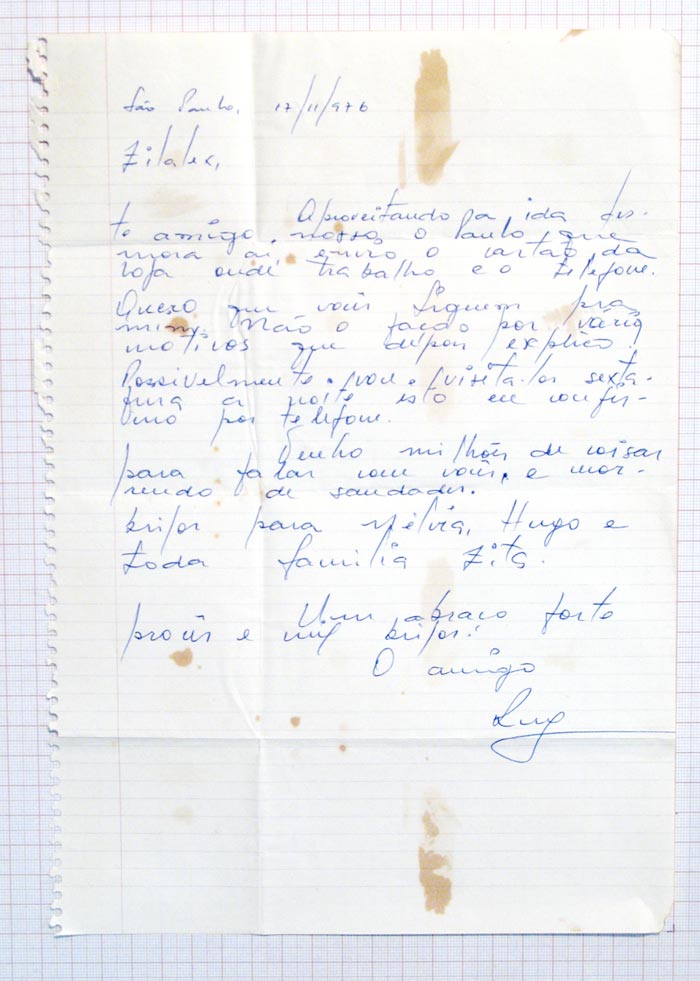 São Paulo, 17/11/976
Zilalex,
Aproveitando a ida des-
te amigo nosso o Paulo, que
mora aí, envio o cartão da
loja onde trabalho e o telefone.
Quero que vocês liguem pra
mim. Não o faço por vários
motivos que depois explico!
Possivelmente vou visita-los sexta-
feira a noite isto eu confir-
mo por telefone.
Tenho milhões de coisas
para falar com vocês, e mor-
rendo de saudades.
beijos para Nélvia, Hugo e
toda familia Zita.
Um abraço forte
procês e mil beijos!
O amigo